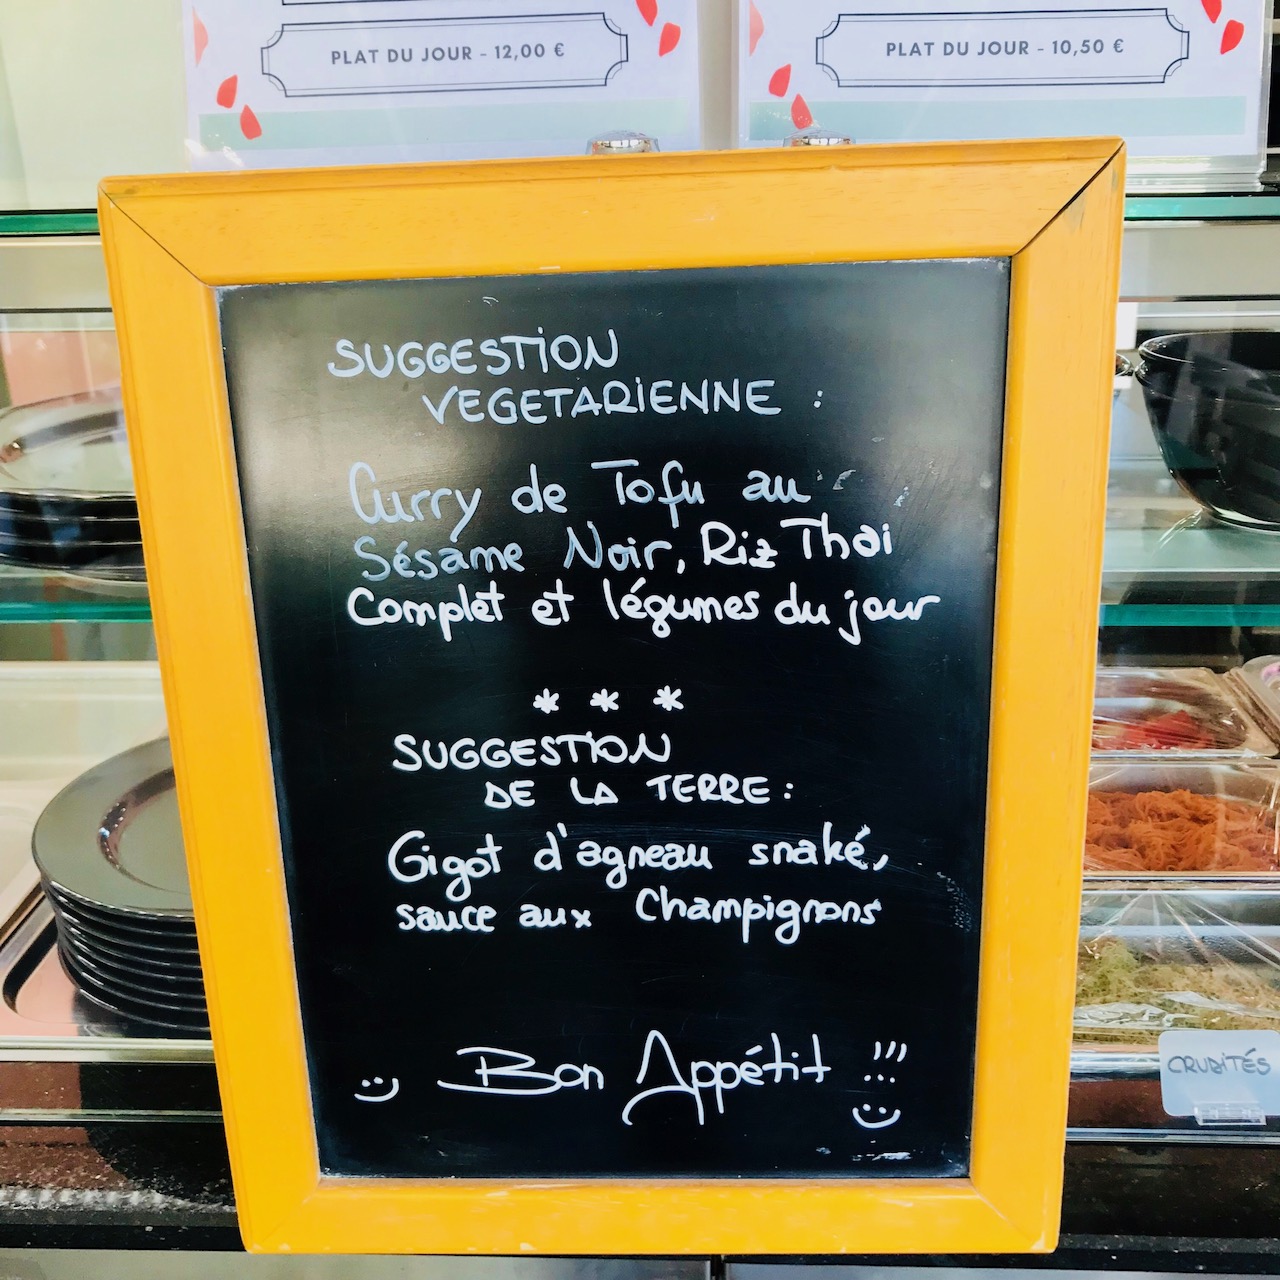 PLAT DU JOUR - 12,00 €
PLAT DU JOUR - 10,50 €
SUGGESTION
VEGETARIENNE :
Curry de Tofu au
Sésame Noir, Riz Thai
Complet et légumes du jour
* * *
SUGGESTION
DE LA TERRE :
Gigot d'agneau snaké,
sauce aux Champignons
Bon Appétit !!!
CRUDITÉS